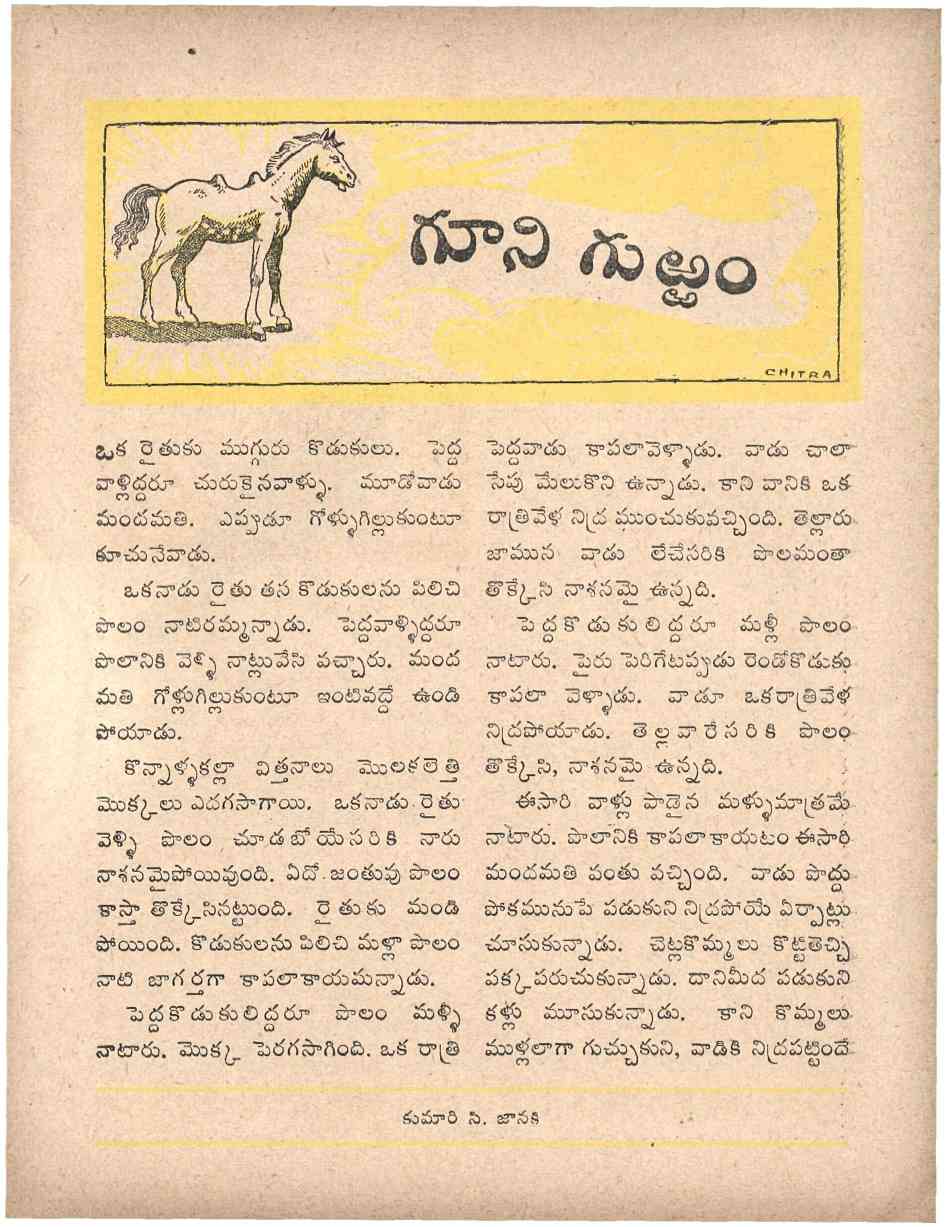 గూని గుఱ్ఱం
CHITRA
ఒక రైతుకు ముగ్గురు కొడుకులు. పెద్ద
వాళ్లిద్దరూ చురుకైనవాళ్ళు. మూడోవాడు
మందమతి. ఎప్పుడూ గోళ్ళుగిల్లుకుంటూ
కూచునేవాడు.
ఒకనాడు రైతు తన కొడుకులను పిలిచి
పొలం నాటిరమ్మన్నాడు. పెద్దవాళ్ళిద్దరూ
పొలానికి వెళ్ళి నాట్లువేసి వచ్చారు. మంద
మతి గోళ్లుగిల్లుకుంటూ ఇంటివద్దే ఉండి
పోయాడు.
కొన్నాళ్ళకల్లా విత్తనాలు మొలకలెత్తి
మొక్కలు ఎదగసాగాయి. ఒకనాడు రైతు
వెళ్ళి పొలం చూడబోయేసరికి నారు
నాశనమైపోయివుంది. ఏదో జంతువు పొలం
కాస్తా తొక్కేసినట్టుంది. రైతుకు మండి
పోయింది. కొడుకులను పిలిచి మళ్లా పొలం
నాటి జాగర్తగా కాపలాకాయమన్నాడు.
పెద్దకొడుకులిద్దరూ పొలం మళ్ళీ
నాటారు. మొక్క పెరగసాగింది. ఒక రాత్రి
పెద్దవాడు కాపలావెళ్ళాడు. వాడు చాలా
సేపు మేలుకొని ఉన్నాడు. కాని వానికి ఒక
రాత్రివేళ నిద్ర ముంచుకువచ్చింది. తెల్లారు
జామున వాడు లేచేసరికి పొలమంతా
తొక్కేసి నాశనమై ఉన్నది.
పెద్దకొడుకులిద్దరూ మళ్లీ పొలం
నాటారు. పైరు పెరిగేటప్పుడు రెండోకొడుకు
కాపలా వెళ్ళాడు. వాడూ ఒకరాత్రివేళ
నిద్రపోయాడు. తెల్లవారేసరికి పొలం
తొక్కేసి, నాశనమై ఉన్నది.
ఈసారి వాళ్లు పాడైన మళ్ళుమాత్రమే
నాటారు. పొలానికి కాపలా కాయటం ఈసారి
మందమతి వంతు వచ్చింది. వాడు పొద్దు
పోకమునుపే పడుకుని నిద్రపోయే ఏర్పాట్లు
చూసుకున్నాడు. చెట్లకొమ్మలు కొట్టితెచ్చి
పక్క పరుచుకున్నాడు. దానిమీద పడుకుని
కళ్లు మూసుకున్నాడు. కాని కొమ్మలు
ముళ్లలాగా గుచ్చుకుని, వాడికి నిద్రపట్టిందే
కుమారి సి. జానకి